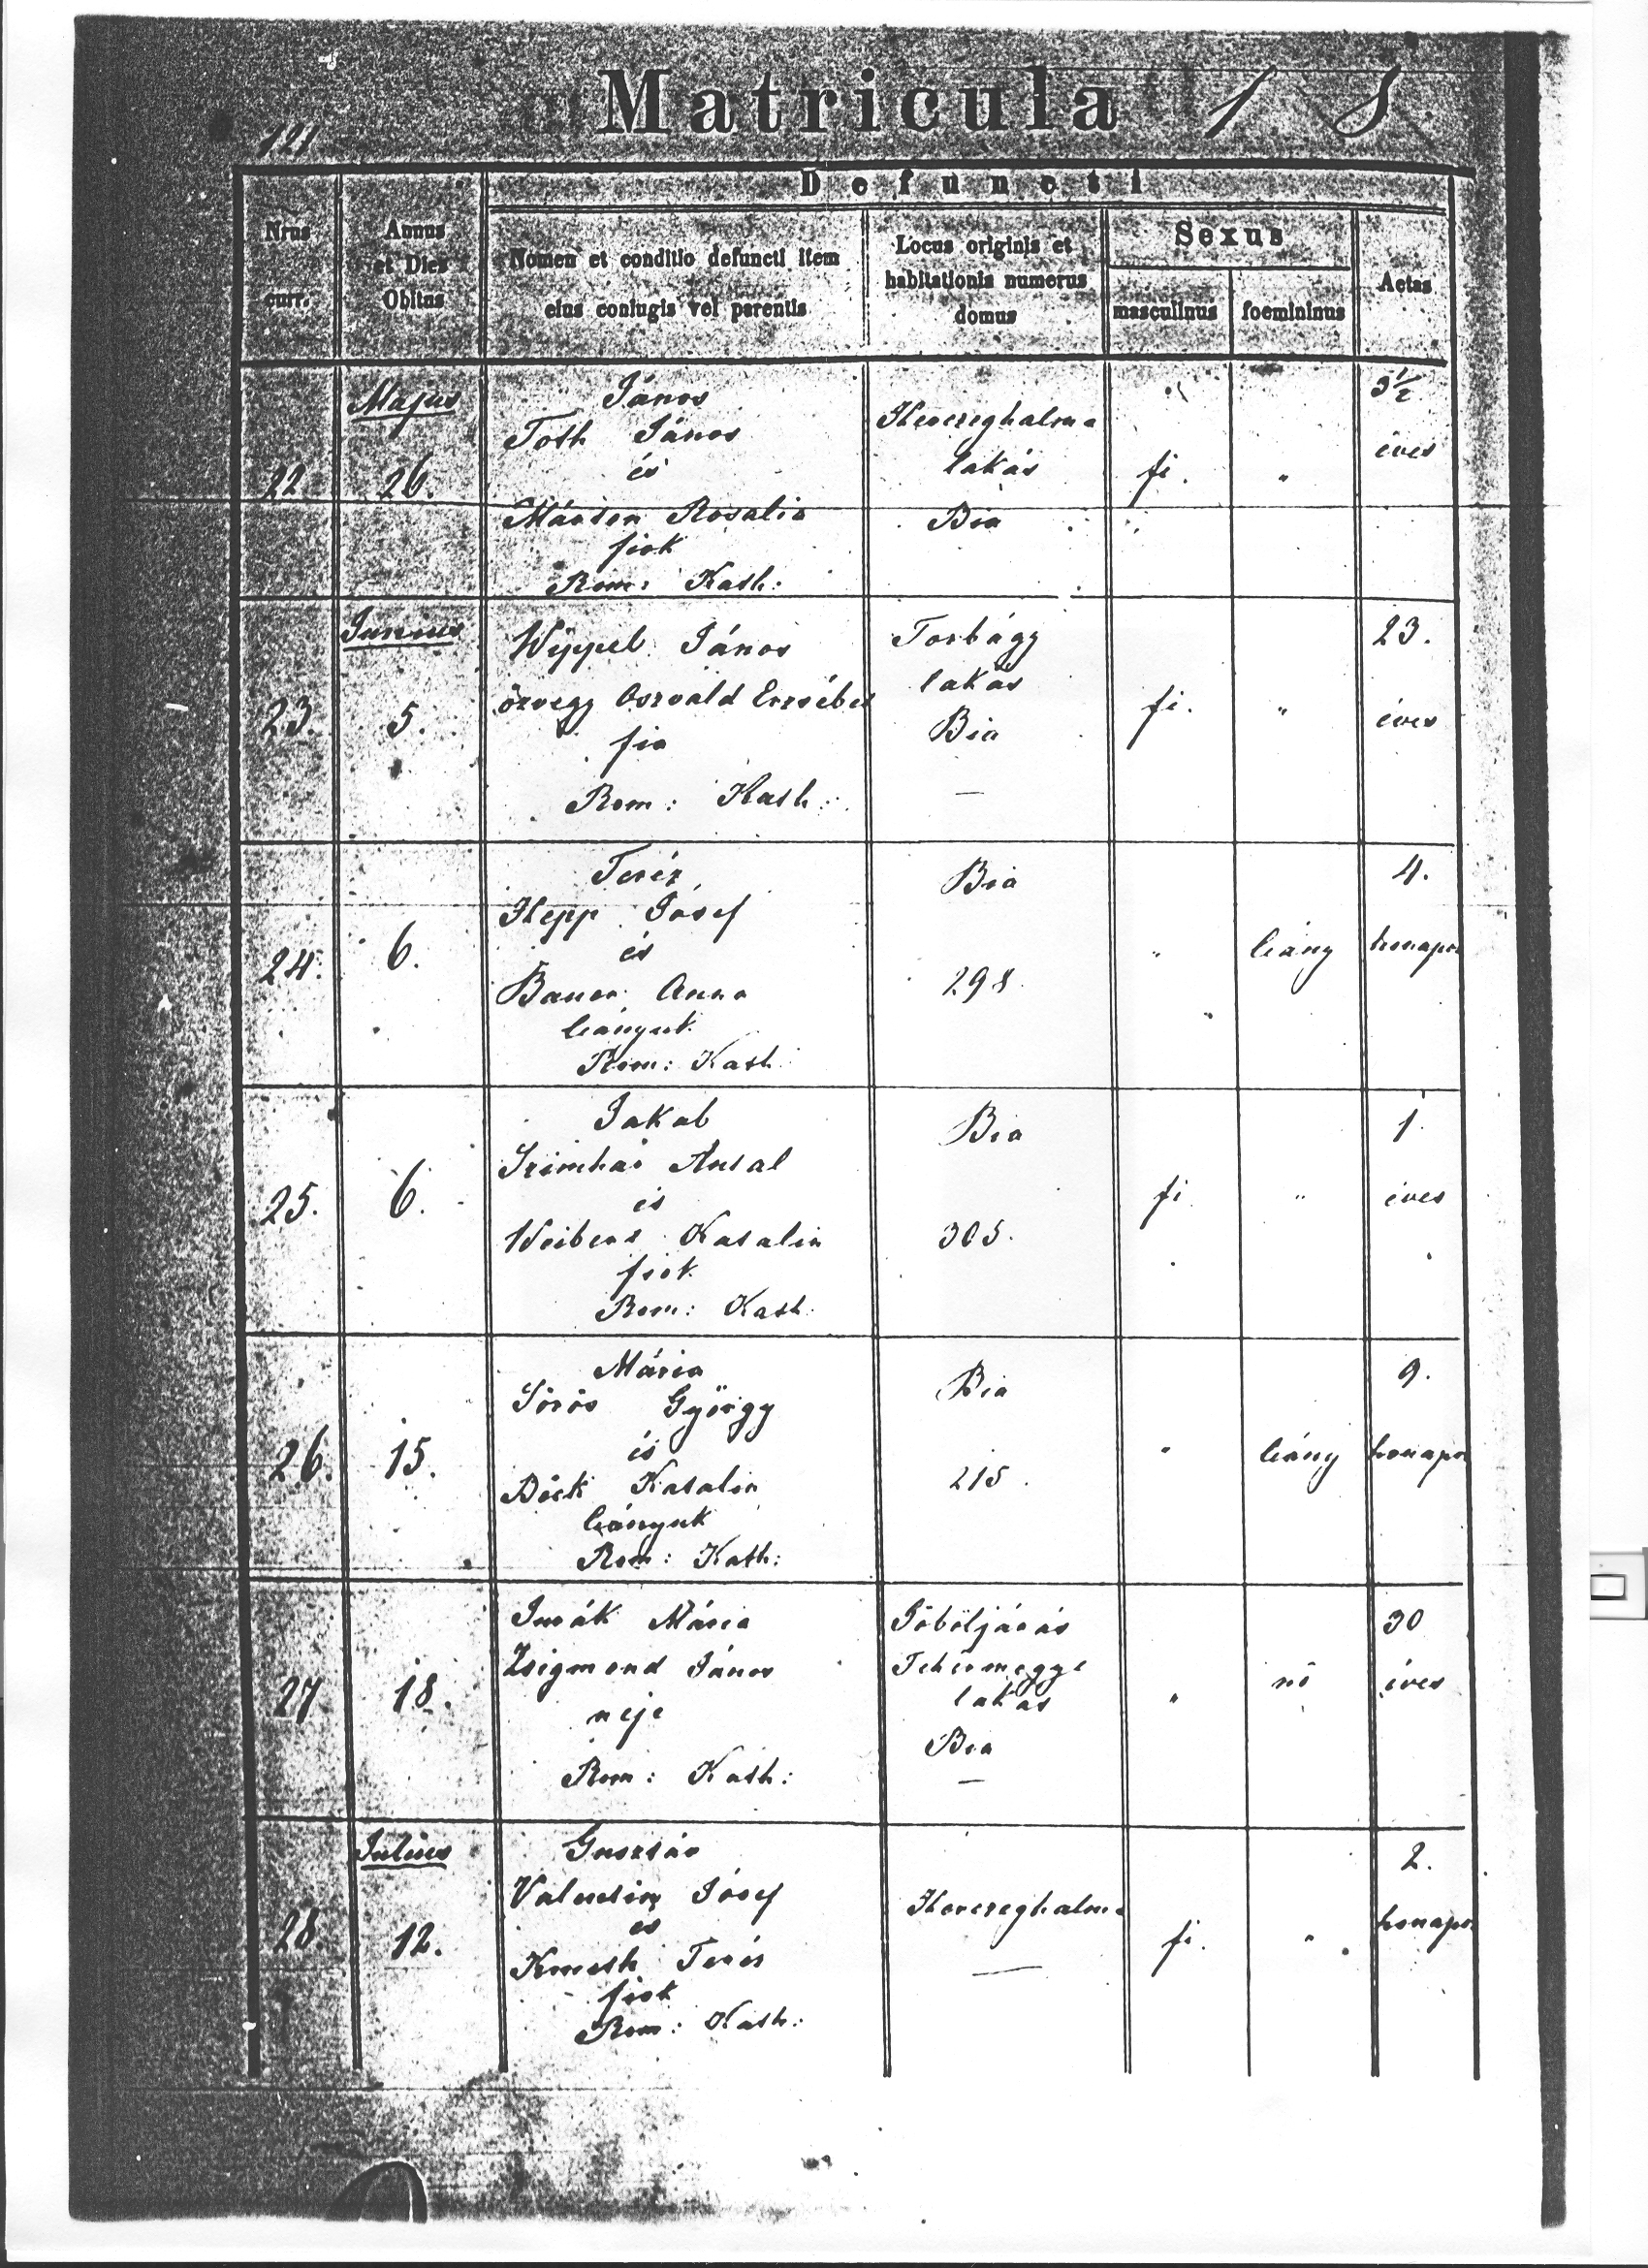 Matricula 1 8
121
Defuncti
Nrus curr.
Annus et Dies Obitus
Nomen et conditio defuncti item
eius coniugis vel parentis
Locus originis et
habitationis numerus
domus
Sexus
masculinus foemininus
Aetas
Majus
22 26.
János
Toth János
és
Rosalia
fiok
Rom: Kath:
Herczeghalma
lakás
Bia
fi. "
3½
éves
Junius
23. 5.
Wippel János
özvegy Oszvald Erzsébet
fia
Rom: Kath:
Torbágy
lakás
Bia
—
fi. "
23.
éves
24. 6.
Teréz
Hepp Jósef
és
Bauer Anna
leányuk
Rom: Kath:
Bia
298.
" leány
4.
honapos
25. 6.
Jakab
Antal
és
Katalin
fiok
Rom: Kath:
Bia
305.
fi "
1.
éves
26. 15.
Mária
Sörös György
és
Böck Katalin
leányuk
Rom: Kath:
Bia
215.
" leány
9.
honapos
27 18.
Mária
Zsigmond János
neje
Rom: Kath:
Göböljárás
Fehérmegye
lakás
Bia
—
" nő
30
éves
Július
28. 12.
Gusztáv
Valentin Jósef
és
Kmeth Teréz
fiok
Rom: Kath:
Herczeghalma
—
fi. "
2.
honapos